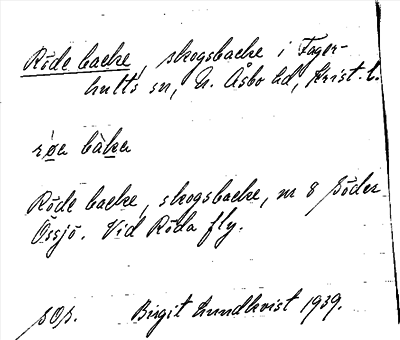 Röde backe, skogsbacke i Fager-
hults sn, N. Åsbo hd, Krist. l.
röa bàka
Röde backe, skogsbacke, nr 8 Söder
Össjö. Vid Röda fly.
sOp. Birgit Lundkvist 1939.